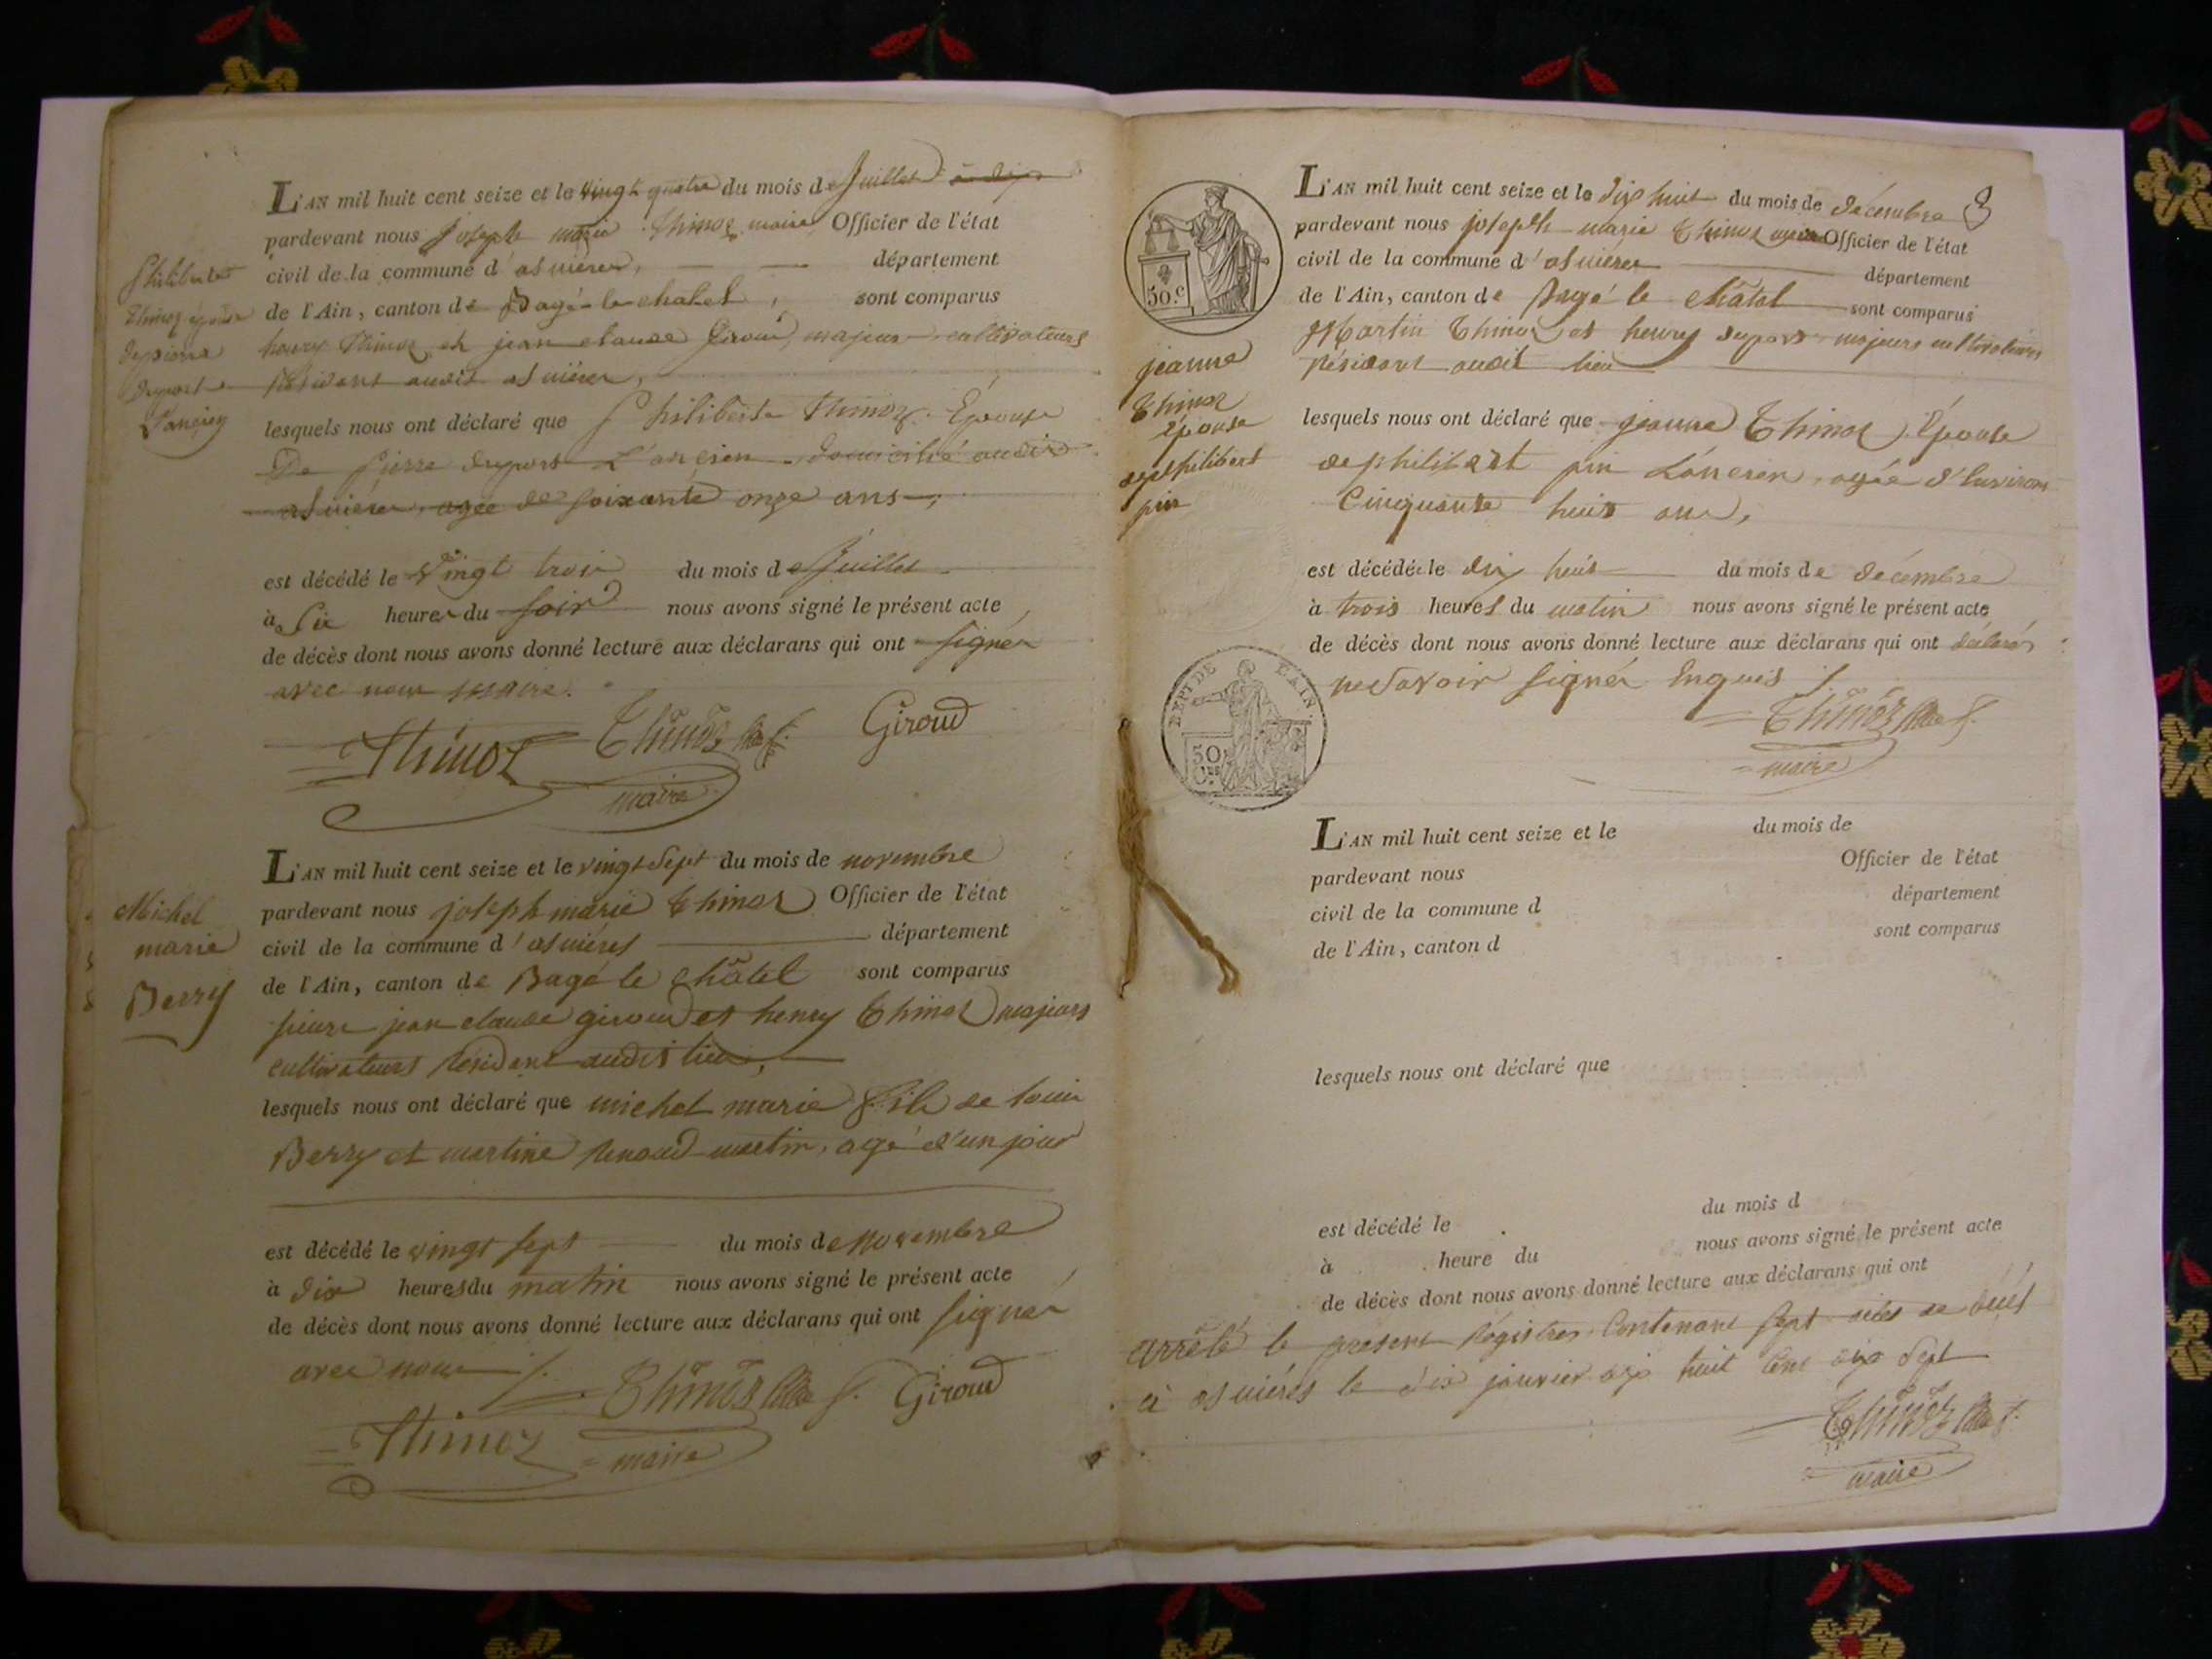 L'AN mil huit cent seize et le vingt quatre du mois de Juillet
pardevant nous joseph marie Thinoz maire Officier de l'état
civil de la commune d'asnières, département
de l'Ain, canton de Bagé-le-chatel, sont comparus
henry Thinoz et jean claude Giroud, majeurs cultivateurs
résidant audit asnières,
lesquels nous ont déclaré que Philiberte Thinoz Épouse
De pierre duport L'ancien domicilié audit
asnières, agée de soixante onze ans,
est décédé le vingt trois du mois de Juillet
à Six heures du soir nous avons signé le présent acte
de décès dont nous avons donné lecture aux déclarans qui ont signés
avec nous maire.
Thinoz Thinoz Giroud
maire
Philiberte
Thinoz épouse
de pierre
duport
L'ancien
L'AN mil huit cent seize et le vingt sept du mois de novembre
pardevant nous joseph marie Thinoz Officier de l'état
civil de la commune d'asnières département
de l'Ain, canton de Bagé le châtel sont comparus
jean claude giroud et henry Thinoz majeurs
cultivateurs résidant audit lieu,
lesquels nous ont déclaré que michel marie fils de louis
Berry et martine Renoud martin, agé d'un jour
est décédé le vingt sept du mois de novembre
à dix heures du matin nous avons signé le présent acte
de décès dont nous avons donné lecture aux déclarans qui ont signés
avec nous
Thinoz Giroud
Thinoz maire
Michel
marie
Berry
L'AN mil huit cent seize et le dix huit du mois de décembre
pardevant nous joseph marie Thinoz maire Officier de l'état
civil de la commune d'asnières département
de l'Ain, canton de Bagé le châtel sont comparus
Martin Thinoz et henry duport majeurs cultivateurs
résidant audit lieu
lesquels nous ont déclaré que jeanne Thinoz Épouse
de philibert pin L'ancien, agée d'Environ
Cinquante huit ans,
est décédée le dix huit du mois de décembre
à trois heures du matin nous avons signé le présent acte
de décès dont nous avons donné lecture aux déclarans qui ont déclarés
ne savoir signer Enquis
Thinoz
maire
50.c
jeanne
Thinoz
Épouse
de philibert
pin
DEPT DE L'AIN
50
L'AN mil huit cent seize et le du mois de
pardevant nous Officier de l'état
civil de la commune d département
de l'Ain, canton d sont comparus
lesquels nous ont déclaré que
est décédé le du mois d
à heure du nous avons signé le présent acte
de décès dont nous avons donné lecture aux déclarans qui ont
arrêté le present Régistres Contenant sept actes de décès
à asnières le dix janvier huit Cent dix sept
Thinoz
maire